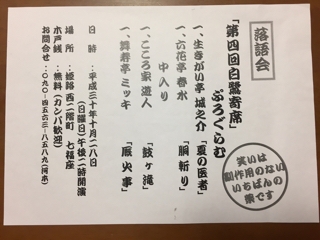 落語会
「第四回白鷺寄席」
ぷろぐらむ
一、生きがい亭 城之介 「夏の医者」
一、六花亭 春水 「胴斬り」
中入り
一、こころ家 遊人 「鼓ヶ滝」
一、舞寿亭 ミッキ 「厩火事」
日時:平成三十年十月二八日
(日曜日)午後二時開演
場所:姫路西二階町 七福座
木戸銭:無料(カンパ歓迎)
お問合せ:090-4563-8589(河本)
笑いは
副作用のない
いちばんの
薬です